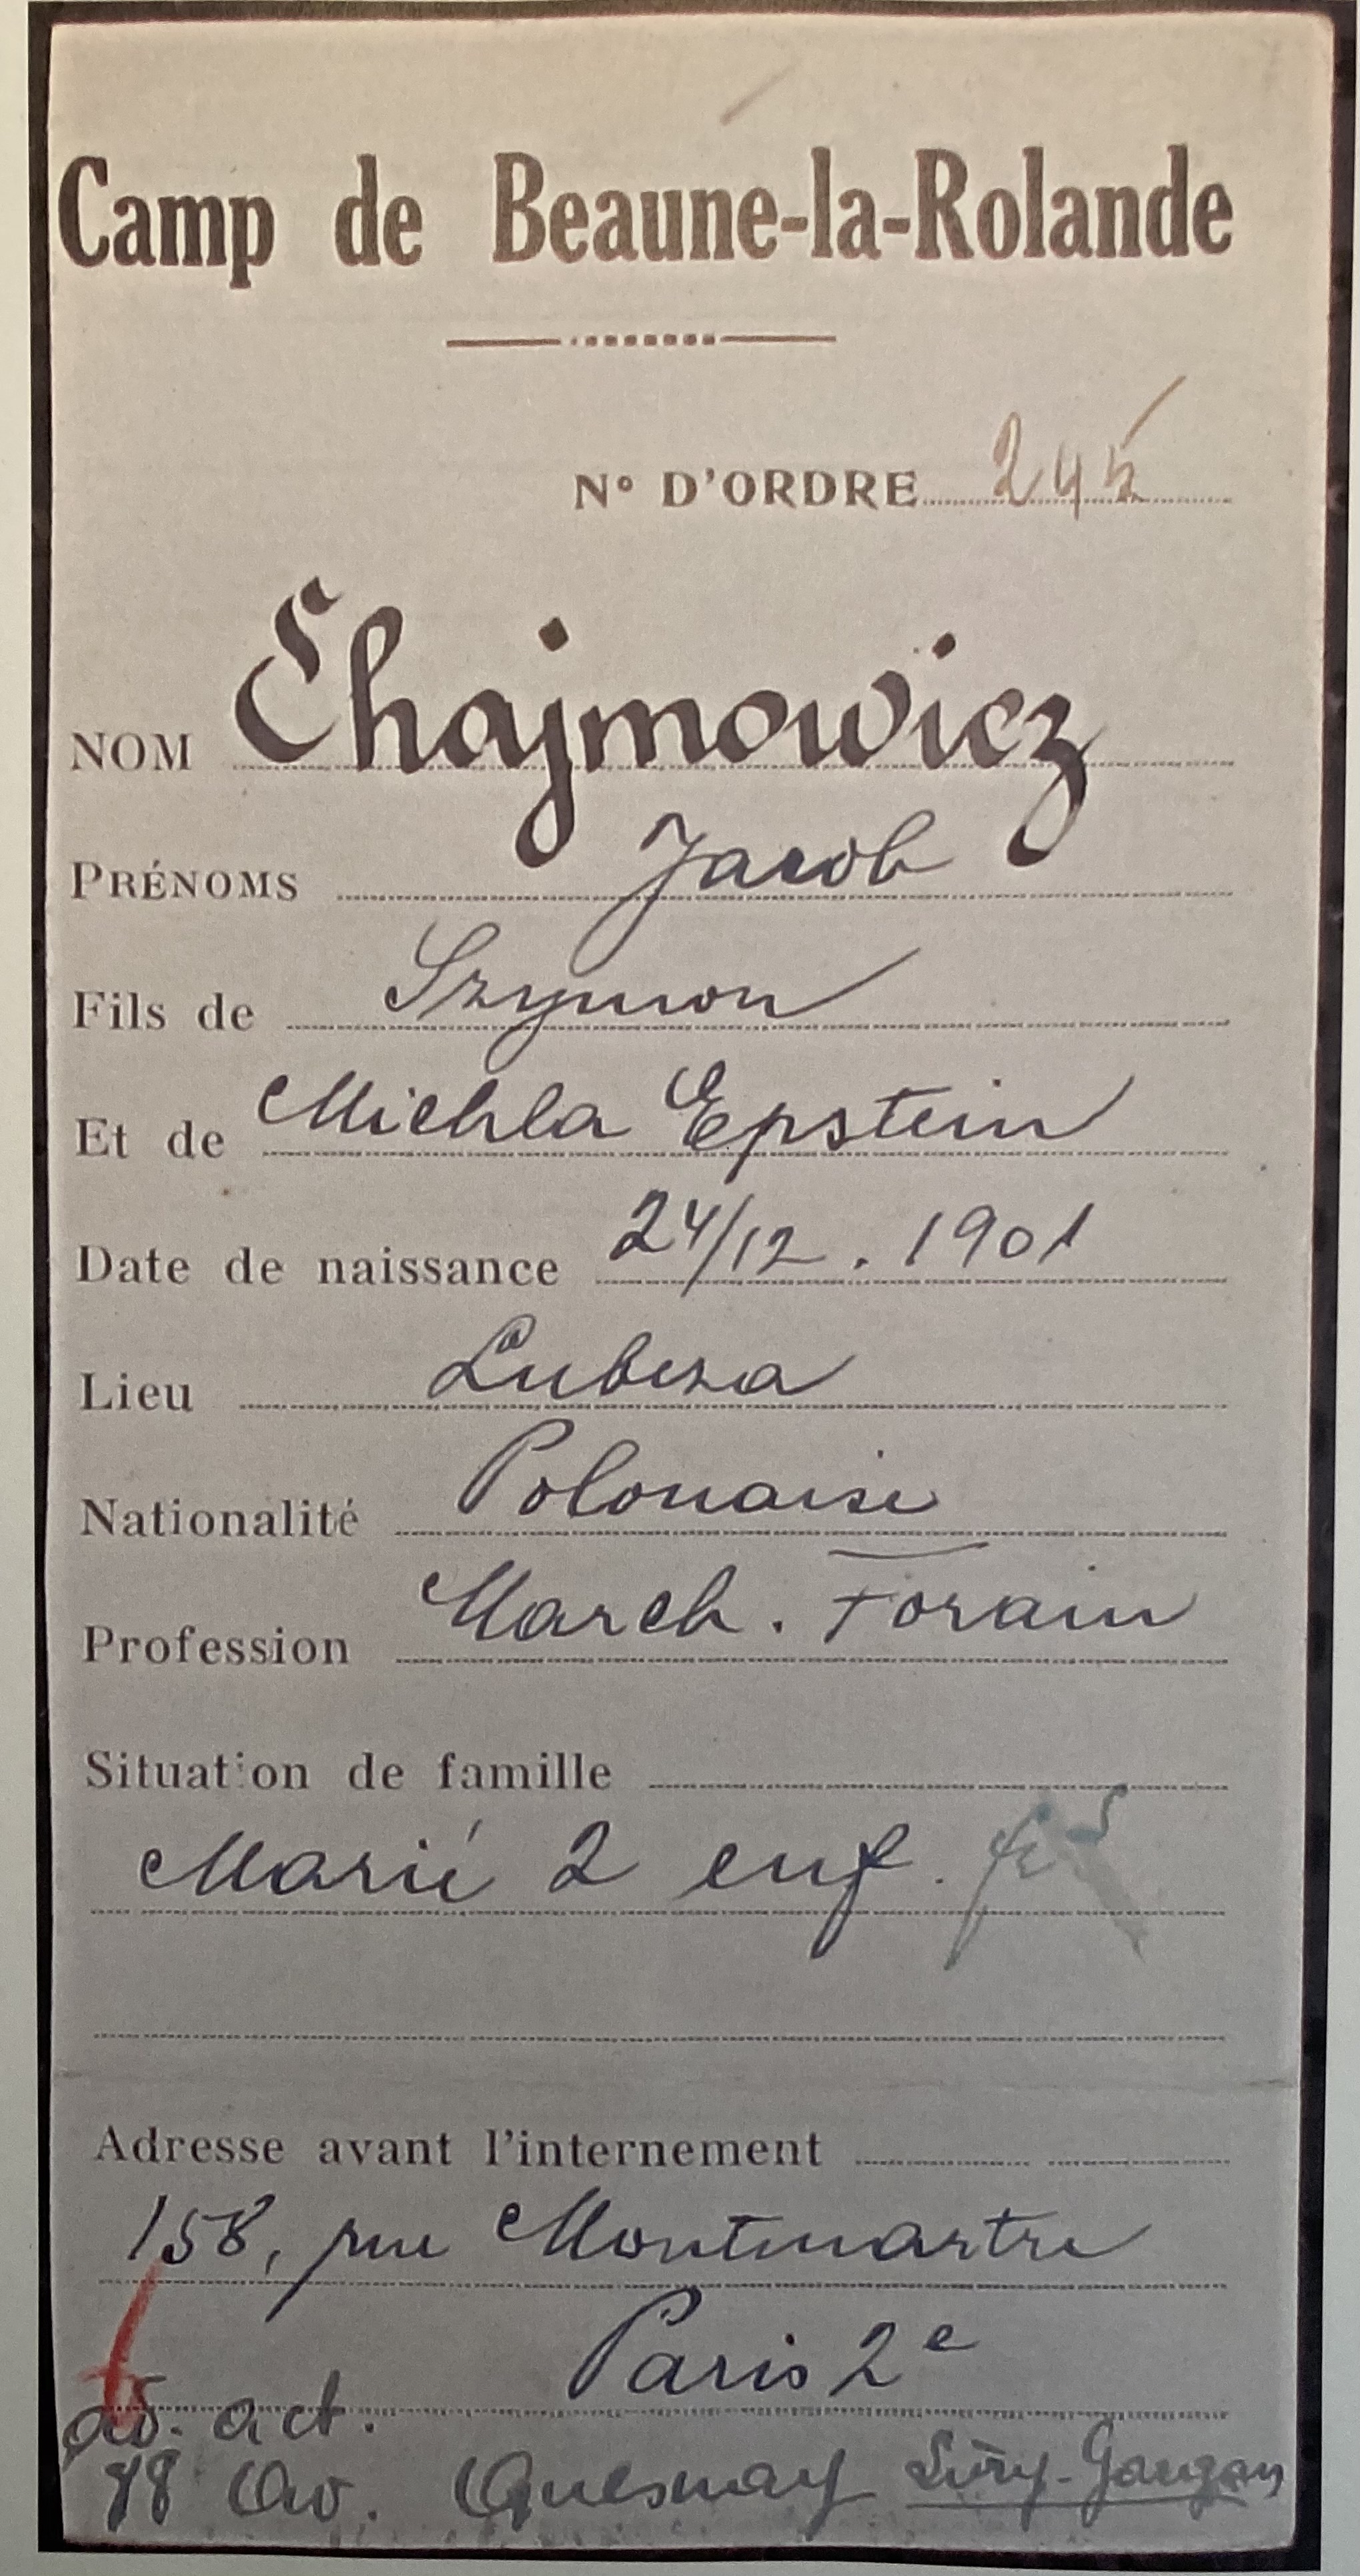 Camp de Beaune-la-Rolande
N° D'ORDRE 245
NOM Chajmowicz
PRÉNOMS Jacob
Fils de Szymon
Et de Michla Epstein
Date de naissance 24/12.1901
Lieu Lubcza
Nationalité Polonaise
Profession March. Forain
Situation de famille
Marié 2 enf.
Adresse avant l'internement
158, rue Montmartre
Paris 2e
ad. act.
98 Av. Quesnay Livry-Gargan